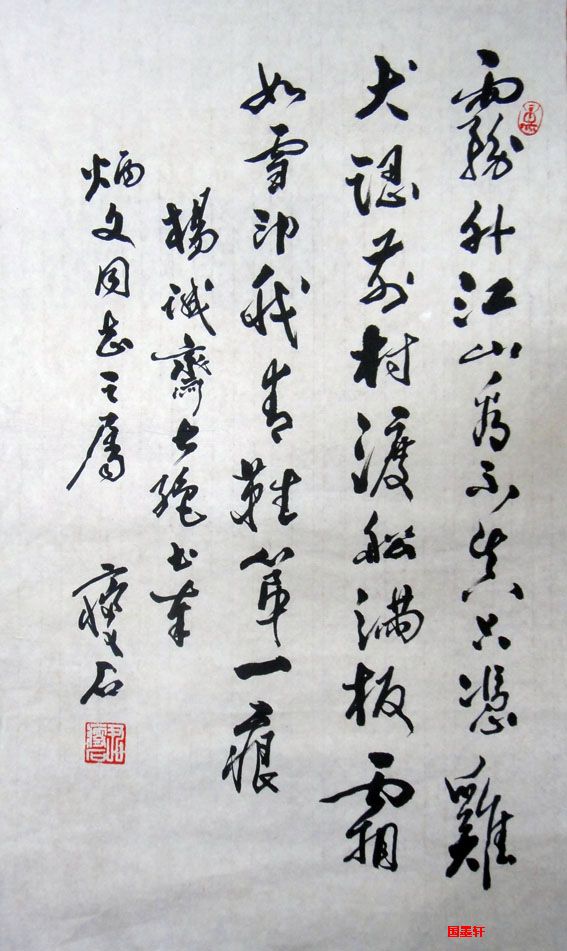 霧外江山看不真只憑雞
犬認前村渡船滿板霜
如雪印我青鞋第一痕
楊誠齋七絕書奉
炳文同志之屬 瘦石
尹瘦石